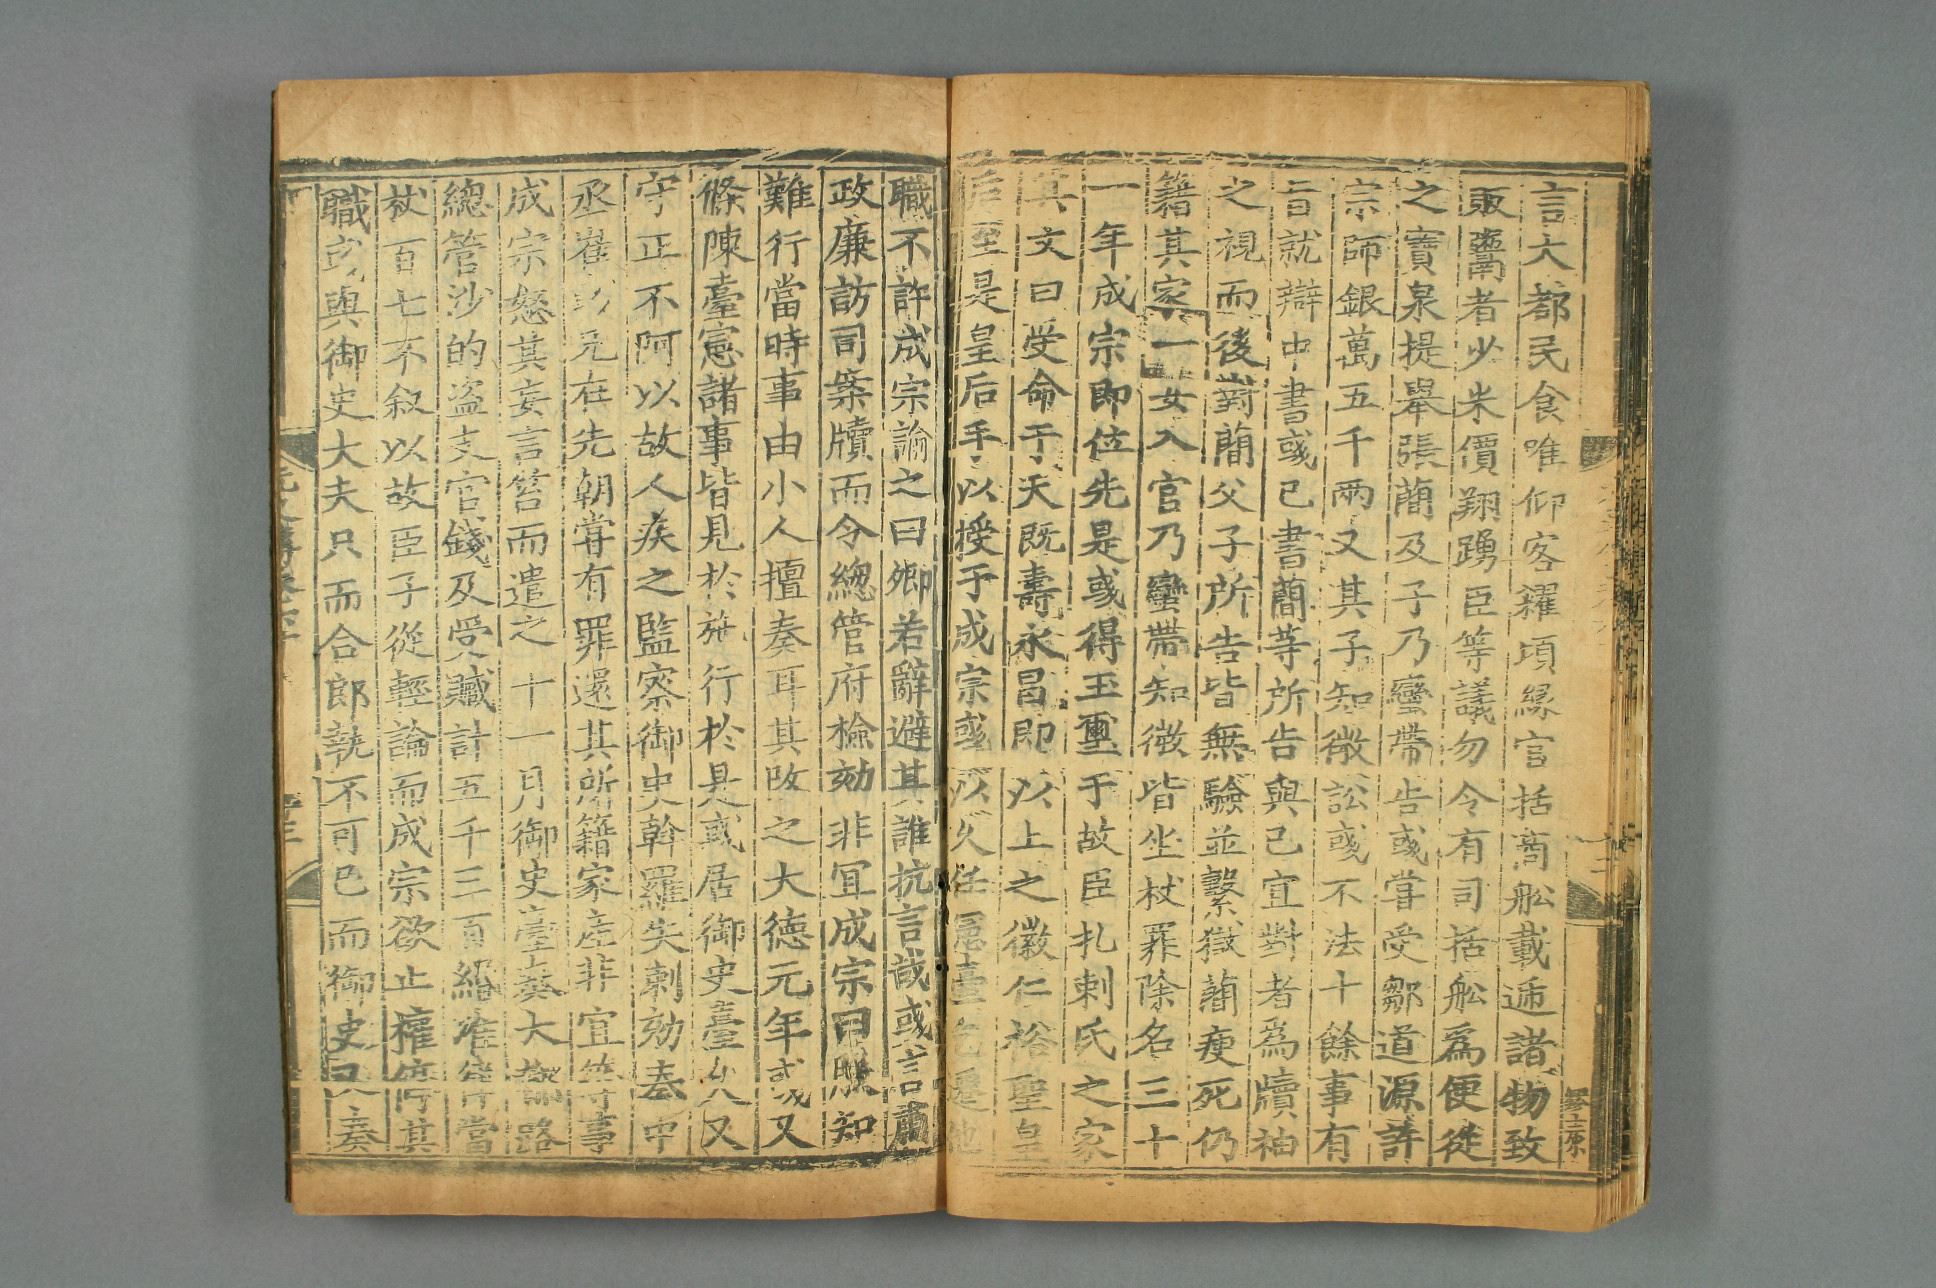 言大都民食唯仰客糴頃緣官括商舩載遞諸物致
販鬻者少米價翔踴臣等議勿令有司括舩爲便從
之寶泉提舉張蕳及子乃蠻帶告彧甞受鄒道源許
宗師銀萬五千兩又其子知微訟彧不法十餘事有
旨就辯中書彧已書蕳等所告與己宜對者爲牘袖
之視而後對蕳父子所告皆無驗並繫獄蕳瘐死仍
籍其家一女入官乃蠻帶知微皆坐杖罪除名三十
一年成宗即位先是彧得玉璽于故臣扎剌氏之家
其文曰受命于天旣壽永昌即以上之徽仁裕聖皇
后至是皇后手以授于成宗彧以久任憲臺乞遷他
職不許成宗諭之曰卿若辭避其誰抗言哉彧言肅
政廉訪司案牘而令總管府檢劾非宜成宗曰朕知
難行當時事由小人擅奏耳其改之大德元年彧又
條陳臺憲諸事皆見於施行於是彧居御史臺久又
守正不阿以故人疾之監察御史斡羅失剌劾奏中
丞崔彧兄在先朝甞有罪還其所籍家產非宜等事
成宗怒其妄言笞而遣之十一月御史臺奏大都路
總管沙的盜支官錢及受贓計五千三百緡准律當
杖百七不敘以故臣子從輕論而成宗欲止權停其
職彧與御史大夫只而合郎執不可已而御史又奏